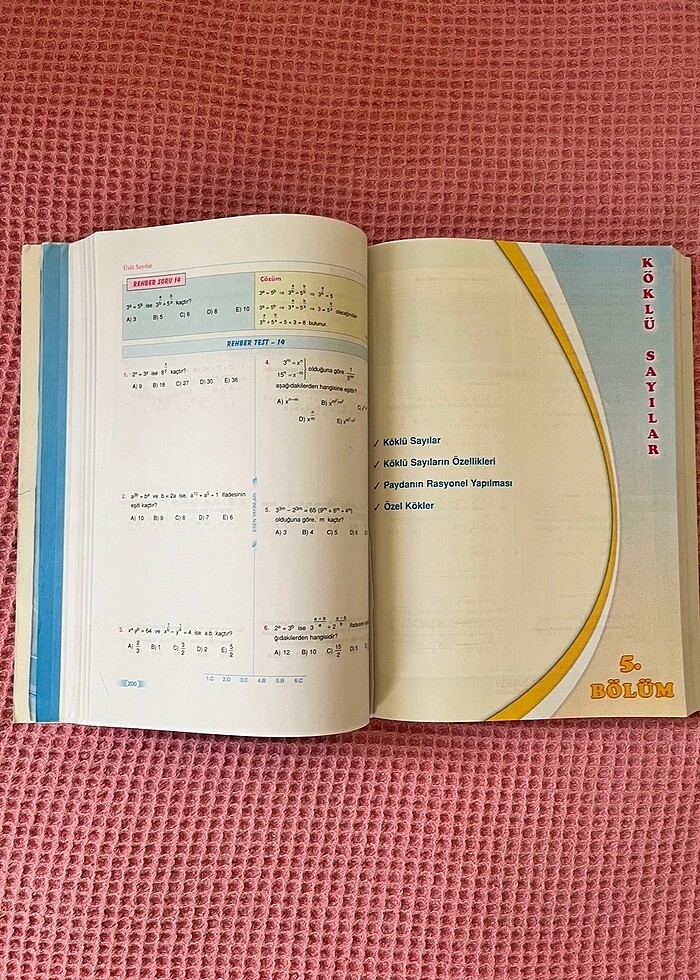 Üslü Sayılar
REHBER SORU 14
3ᵃ = 5ᵇ ise 3^(a/b) + 5^(b/a) kaçtır?
A) 3 B) 5 C) 6 D) 8 E) 10
Çözüm
3ᵃ = 5ᵇ ⇒ 3^(a/b) = 5^(b/b) ⇒ 3^(a/b) = 5
3ᵃ = 5ᵇ ⇒ 3^(a/a) = 5^(b/a) ⇒ 3 = 5^(b/a) olacağından
3^(a/b) + 5^(b/a) = 5 + 3 = 8 bulunur.
REHBER TEST – 14
1. ise kaçtır?
A) 9 B) 18 C) 27 D) 30 E) 36
2. ve b = 2a ise, ifadesinin
eşiti kaçtır?
A) 10 B) 9 C) 8 D) 7 E) 6
3. ve ise a.b kaçtır?
A) 2/3 B) 1 C) 3/2 D) 2 E) 5/2
4. 3ᵐ = xⁿ
15ⁿ = x⁻ᵐ
olduğuna göre
aşağıdakilerden hangisine eşittir?
5. 3³ᵐ – 2³ᵐ = 65 (9ᵐ + 6ᵐ + 4ᵐ)
olduğuna göre, m kaçtır?
A) 3 B) 4 C) 5 D) 6
6. 2ᵃ = 3ᵇ ise
ğıdakilerden hangisidir?
A) 12 B) 10 C) 15/2 D) 5
ESEN YAYINLARI
200
1.C 2.D 3.C 4.B 5.B 6.C
KÖKLÜ SAYILAR
✓ Köklü Sayılar
✓ Köklü Sayıların Özellikleri
✓ Paydanın Rasyonel Yapılması
✓ Özel Kökler
5.
BÖLÜM